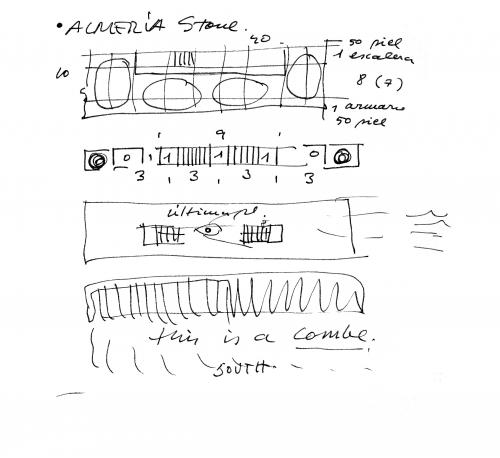 • ALMERÍA Stone.
20
50 piel
1 escalera
10
8 (7)
1 armario
50 piel
9
0 1 1 1 0
3 3 3 3
última pl.
this is a combe.
SOUTH